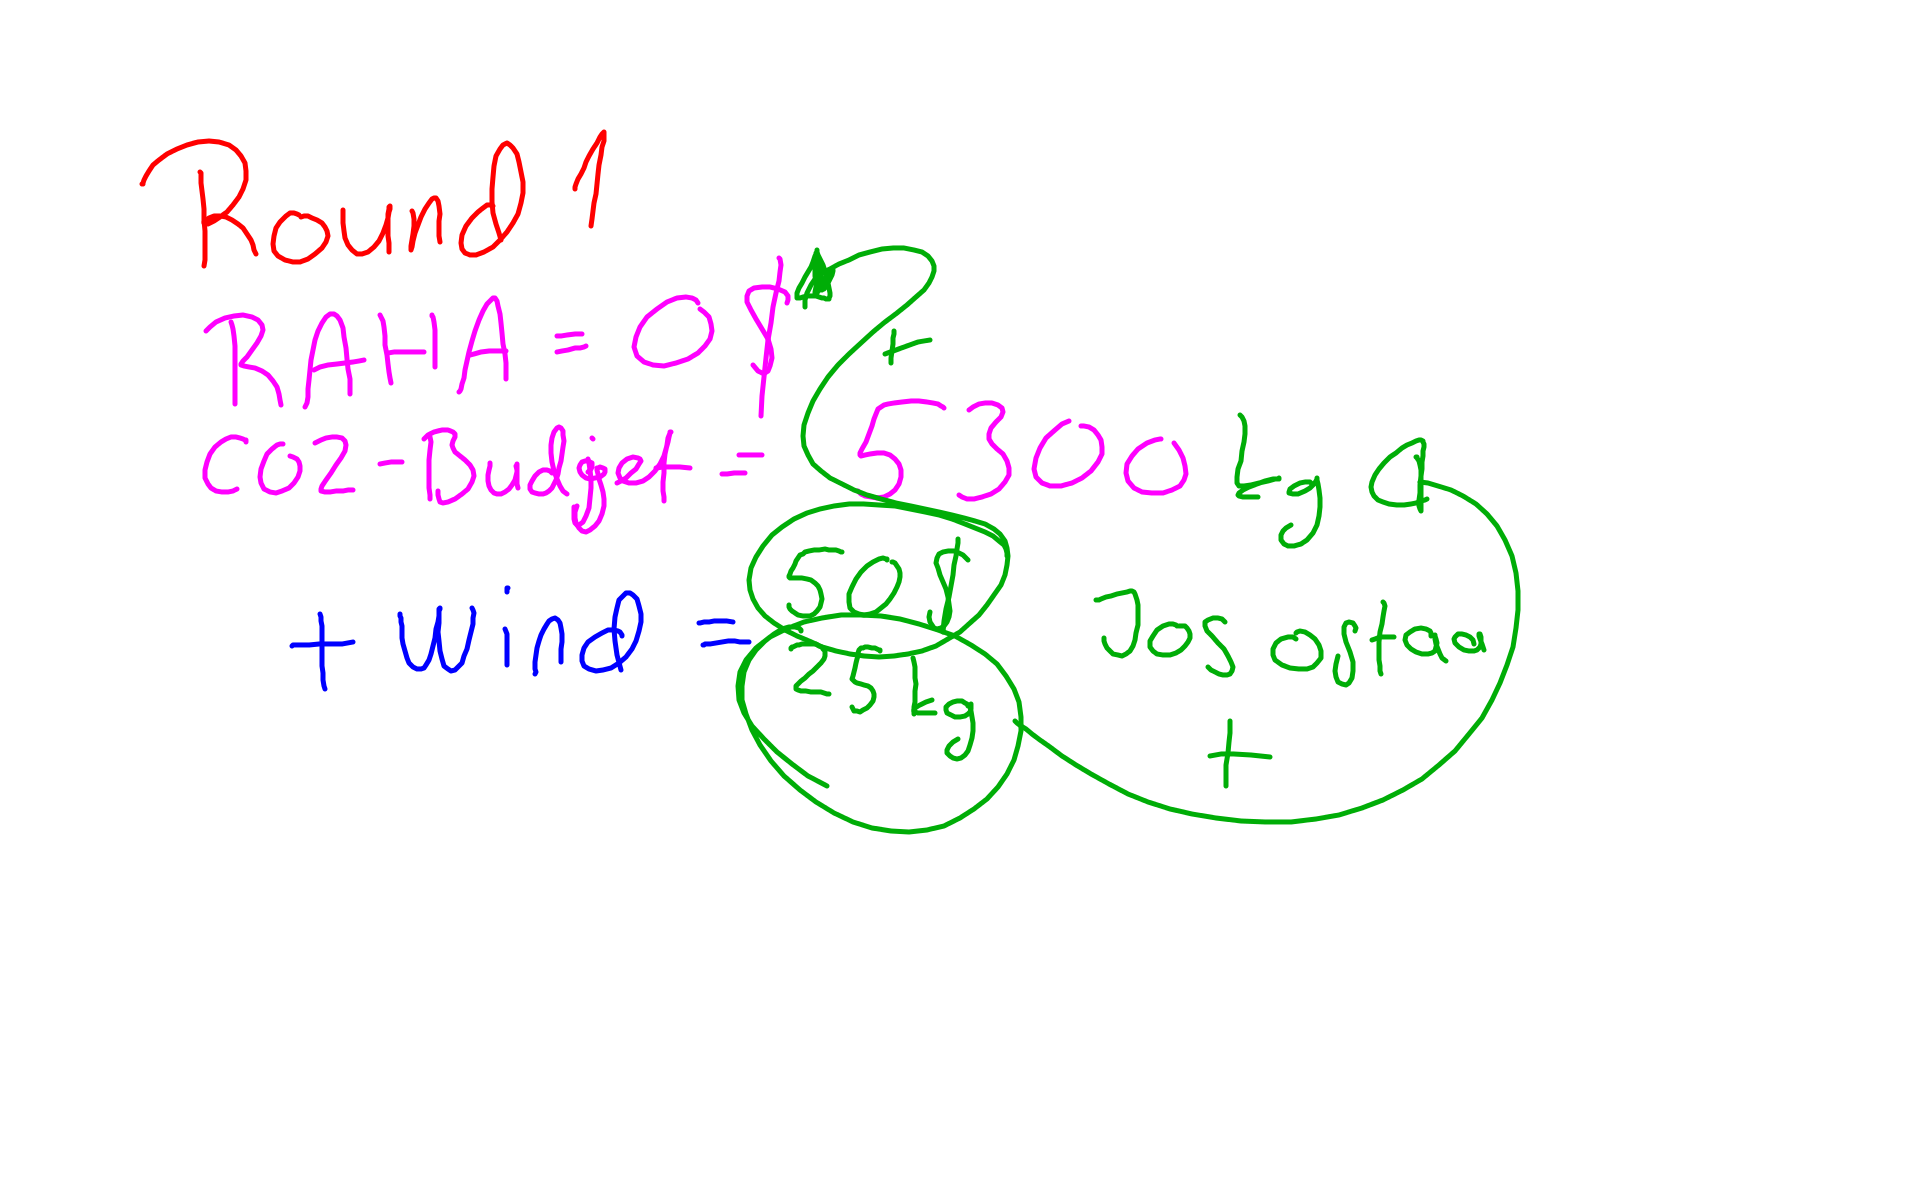 Round 1
RAHA = 0 $
+
CO2-Budjet = 5300 kg
50 $
+ Wind = 25 kg
Jos ostaa
+